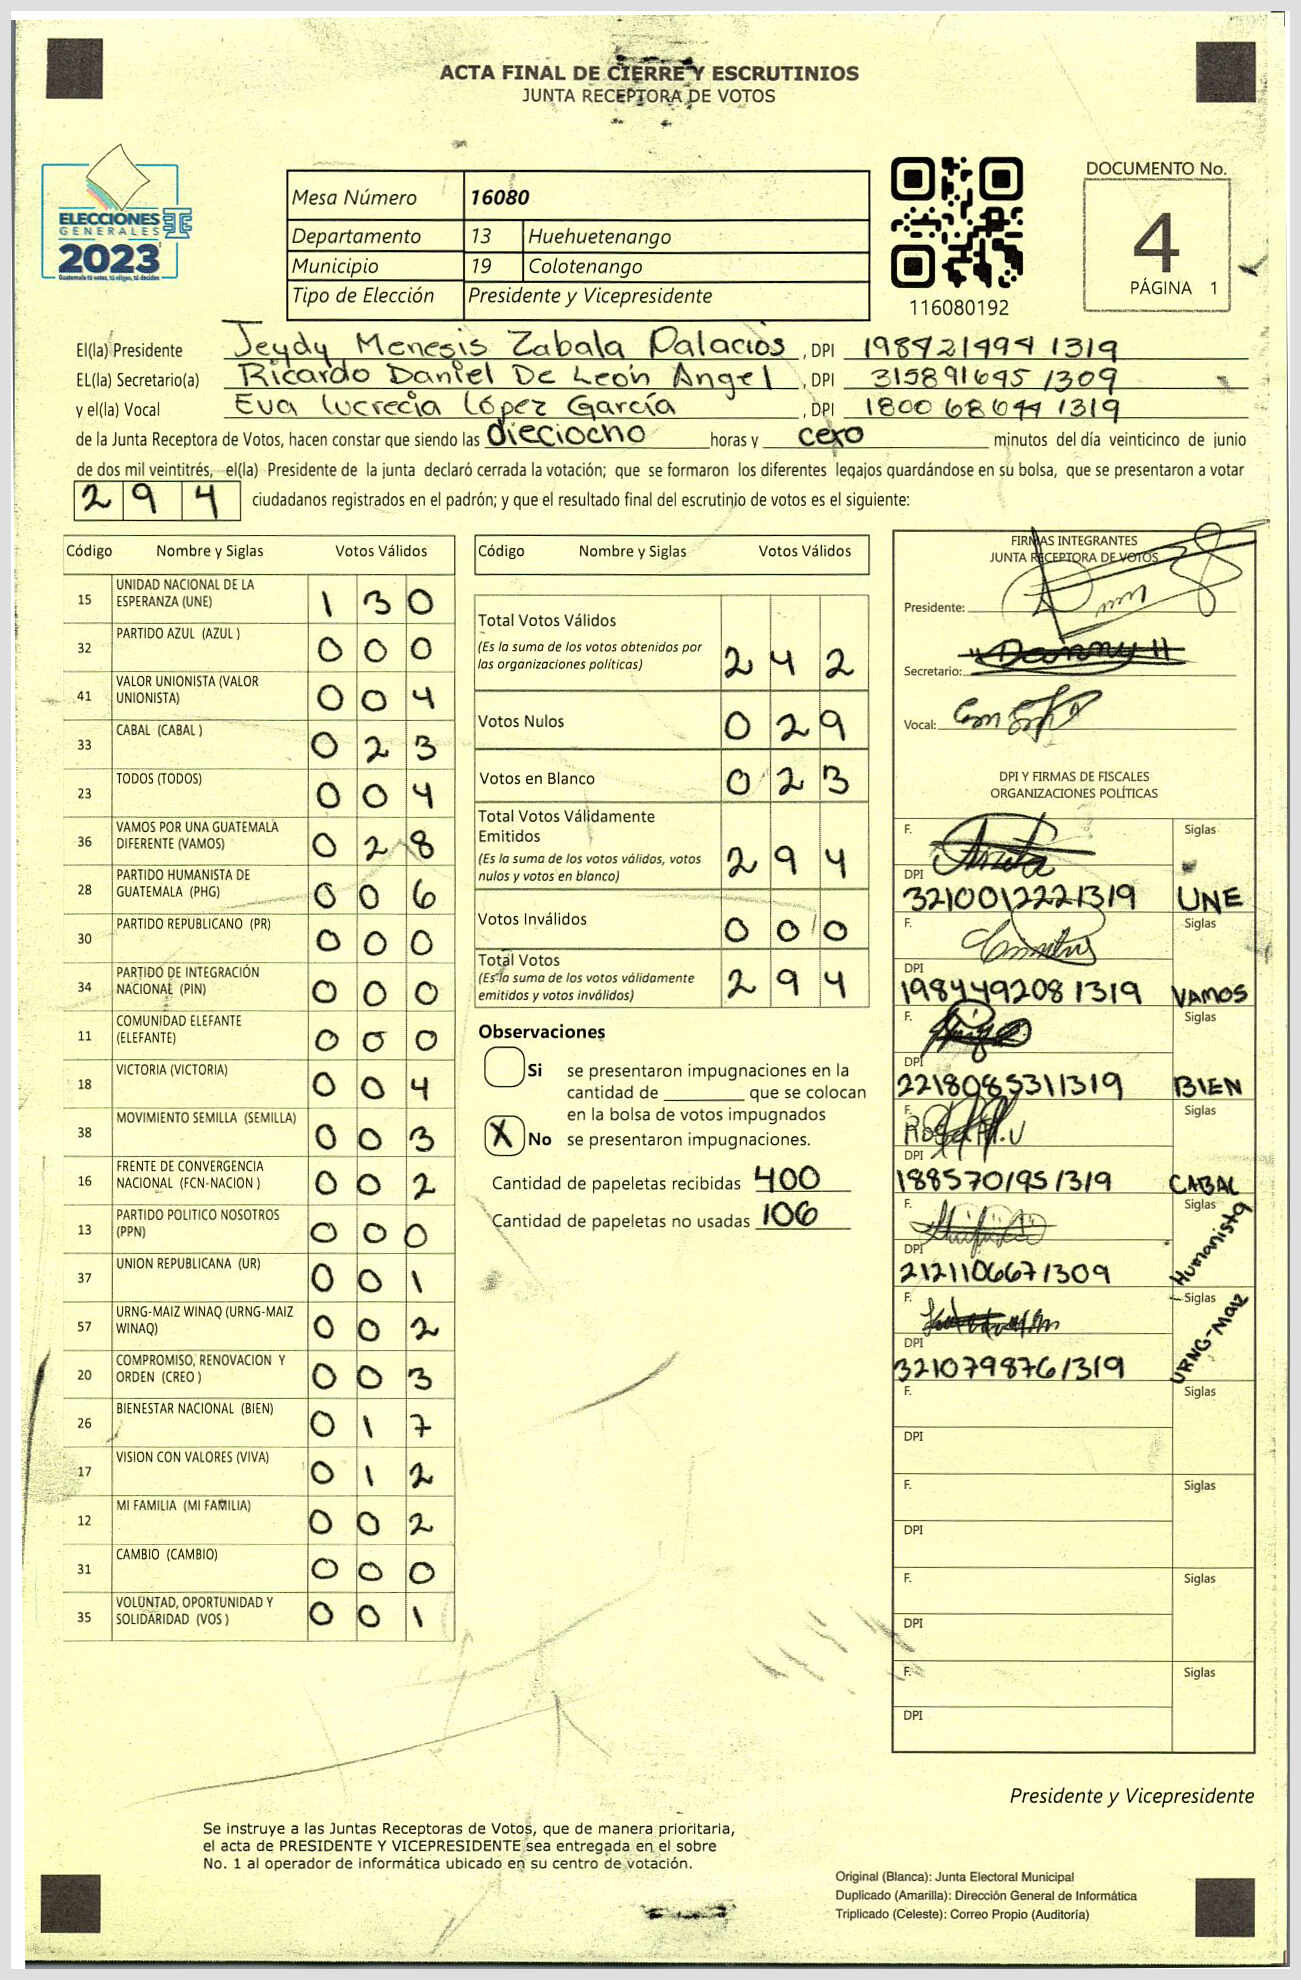 ACTA FINAL DE CIERRE Y ESCRUTINIOS
JUNTA RECEPTORA DE VOTOS
ELECCIONES
GENERALES
2023
Guatemala tú votas, tú eliges, tú decides
Mesa Número 16080
Departamento 13 Huehuetenango
Municipio 19 Colotenango
Tipo de Elección Presidente y Vicepresidente
116080192
DOCUMENTO No.
4
PÁGINA 1
El(la) Presidente Jeydy Menesis Zabala Palacios, DPI 198421494 1319
EL(la) Secretario(a) Ricardo Daniel De León Angel, DPI 315891645 1309
y el(la) Vocal Eva Lucrecia López García, DPI 1800 68644 1319
de la Junta Receptora de Votos, hacen constar que siendo las dieciocho horas y cero minutos del día veinticinco de junio
de dos mil veintitrés, el(la) Presidente de la junta declaró cerrada la votación; que se formaron los diferentes legajos quardándose en su bolsa, que se presentaron a votar
294 ciudadanos registrados en el padrón; y que el resultado final del escrutinio de votos es el siguiente:
Código Nombre y Siglas Votos Válidos
15 UNIDAD NACIONAL DE LA ESPERANZA (UNE) 130
32 PARTIDO AZUL (AZUL ) 000
41 VALOR UNIONISTA (VALOR UNIONISTA) 004
33 CABAL (CABAL ) 023
23 TODOS (TODOS) 004
36 VAMOS POR UNA GUATEMALA DIFERENTE (VAMOS) 028
28 PARTIDO HUMANISTA DE GUATEMALA (PHG) 006
30 PARTIDO REPUBLICANO (PR) 000
34 PARTIDO DE INTEGRACIÓN NACIONAL (PIN) 000
11 COMUNIDAD ELEFANTE (ELEFANTE) 000
18 VICTORIA (VICTORIA) 004
38 MOVIMIENTO SEMILLA (SEMILLA) 003
16 FRENTE DE CONVERGENCIA NACIONAL (FCN-NACION ) 002
13 PARTIDO POLITICO NOSOTROS (PPN) 000
37 UNION REPUBLICANA (UR) 001
57 URNG-MAIZ WINAQ (URNG-MAIZ WINAQ) 002
20 COMPROMISO, RENOVACION Y ORDEN (CREO ) 003
26 BIENESTAR NACIONAL (BIEN) 017
17 VISION CON VALORES (VIVA) 012
12 MI FAMILIA (MI FAMILIA) 002
31 CAMBIO (CAMBIO) 000
35 VOLUNTAD, OPORTUNIDAD Y SOLIDARIDAD (VOS ) 001
Código Nombre y Siglas Votos Válidos
Total Votos Válidos
(Es la suma de los votos obtenidos por
las organizaciones políticas) 242
Votos Nulos 029
Votos en Blanco 023
Total Votos Válidamente
Emitidos
(Es la suma de los votos válidos, votos
nulos y votos en blanco) 294
Votos Inválidos 000
Total Votos
(Es la suma de los votos válidamente
emitidos y votos inválidos) 294
Observaciones
Si se presentaron impugnaciones en la
cantidad de ________ que se colocan
en la bolsa de votos impugnados
X No se presentaron impugnaciones.
Cantidad de papeletas recibidas 400
Cantidad de papeletas no usadas 106
FIRMAS INTEGRANTES
JUNTA RECEPTORA DE VOTOS
Presidente:
Secretario: "Danny"
Vocal:
DPI Y FIRMAS DE FISCALES
ORGANIZACIONES POLÍTICAS
F. Siglas
DPI
3210012221319 UNE
F. Siglas
DPI
1984492081319 VAMOS
F. Siglas
DPI
2218085311319 BIEN
F. Siglas
DPI
1885701951319 CABAL
F. Siglas
DPI
2121106671309 Humanista
F. Siglas
DPI
3210798761319 URNG-Maiz
F. Siglas
DPI
F. Siglas
DPI
F. Siglas
DPI
F. Siglas
DPI
Presidente y Vicepresidente
Se instruye a las Juntas Receptoras de Votos, que de manera prioritaria,
el acta de PRESIDENTE Y VICEPRESIDENTE sea entregada en el sobre
No. 1 al operador de informática ubicado en su centro de votación.
Original (Blanca): Junta Electoral Municipal
Duplicado (Amarilla): Dirección General de Informática
Triplicado (Celeste): Correo Propio (Auditoría)